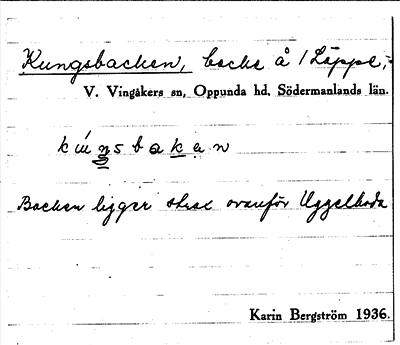 Kungsbacken, backe å /Läppe,
V. Vingåkers sn, Oppunda hd, Södermanlands län.
kúŋsbakan
Backen ligger strax ovanför Uggelboda
Karin Bergström 1936.